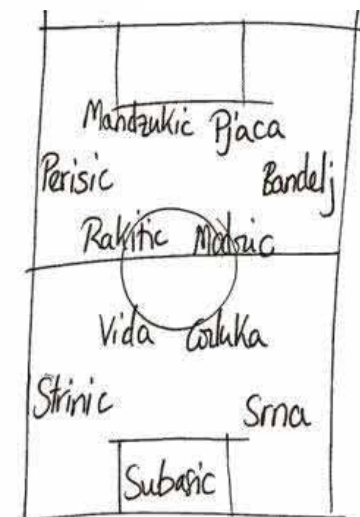 Mandzukic Pjaca
Perisic Bandelj
Rakitic Modric
Vida Corluka
Strinic Srna
Subasic